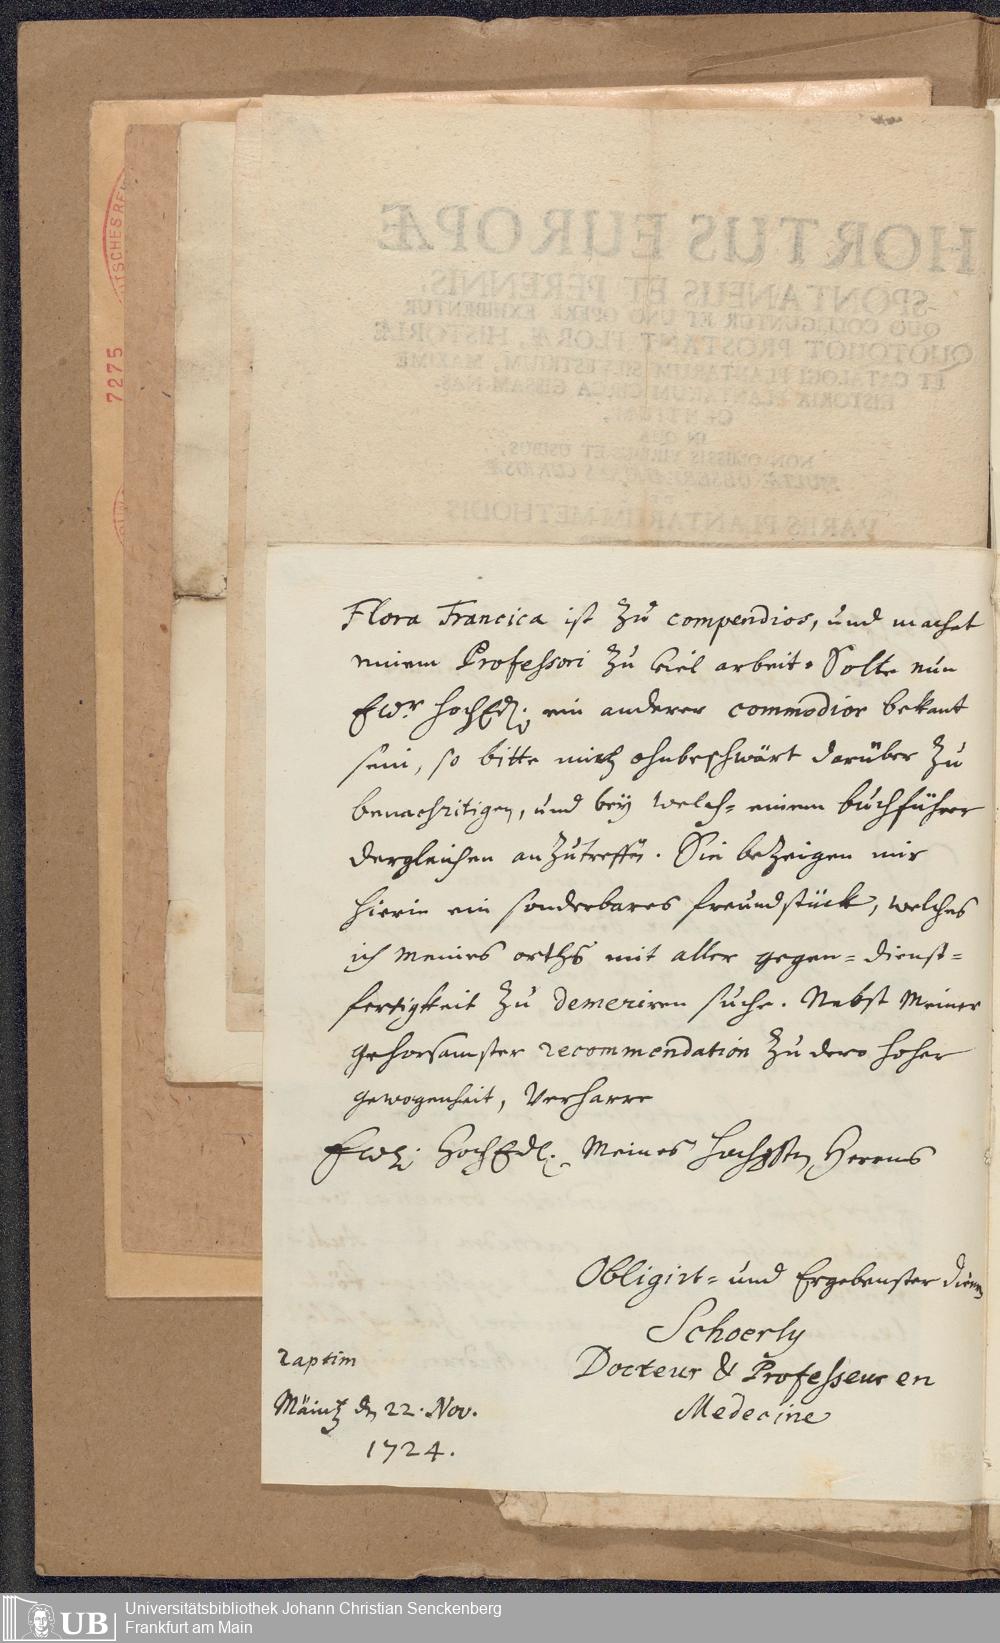 HORTUS EUROPÆ
SPONTANEUS ET PERENNIS,
QUO COLLIGUNTUR ET UNO OPERE EXHIBENTUR
QUOTQUOT PROSTANT FLORÆ, HISTORIÆ
ET CATALOGI PLANTARUM SILVESTRIUM, MAXIME
HISTORIA PLANTARUM CIRCA GISSAM NAS-
CENTIUM,
IN QUA
NON OMISSIS VIRIBUS ET USIBUS,
MULTÆ OBSERVATIONES CURIOSÆ
DE
VARIIS PLANTARUM METHODIS
7275
Flora Francica ist zu compendios, und machet
einem Professori zu viel arbeit. Solte nun
Ewr HochEdl; ein anderer commodior bekant
sein, so bitte mich ohnbeschwärt darüber zu
benachritigen, und bey welch= einem buchführer
dergleichen anzutreffen. Sie bezeigen mir
hierin ein sonderbares freundstück, welches
ich meines orths mit aller gegen= dienst=
fertigkeit zu demeriren suche. Nebst Meiner
gehorsamster recommendation zu dero hoher
gewogenheit, Verharre
Ew; HochEdl. Meines Herrens
Obligirt= und Ergebenster diener
Schoerly
raptim
Docteur & Professeur en
Mäintz den 22. Nov.
Medecine
1724.
UB
Universitätsbibliothek Johann Christian Senckenberg
Frankfurt am Main